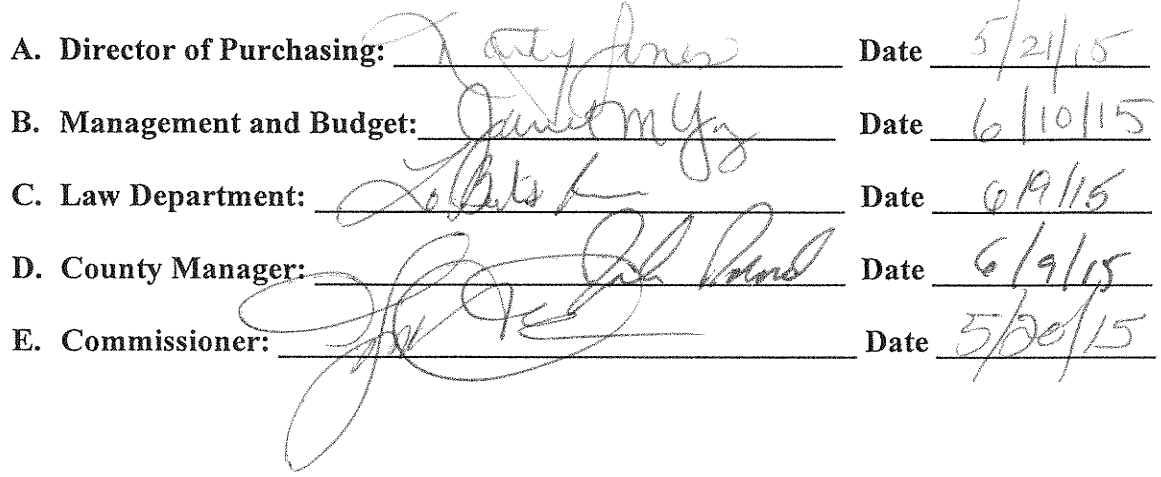 A. Director of Purchasing: Jones Date 5/21/15
B. Management and Budget: Janet M Date 6/10/15
C. Law Department: Date 6/9/15
D. County Manager: Date 6/9/15
E. Commissioner: Date 5/20/15